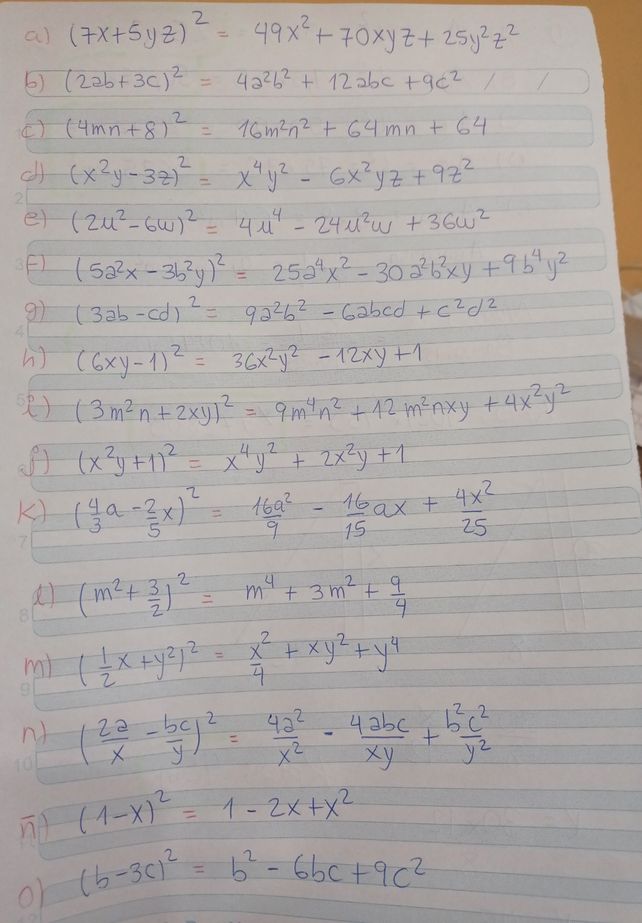 a) (7x+5yz)² = 49x² + 70xyz + 25y²z²
b) (2ab+3c)² = 4a²b² + 12abc + 9c² / /
c) (4mn+8)² = 16m²n² + 64mn + 64
d) (x²y-3z)² = x⁴y² - 6x²yz + 9z²
e) (2u²-6w)² = 4u⁴ - 24u²w + 36w²
f) (5a²x - 3b²y)² = 25a⁴x² - 30a²b²xy + 9b⁴y²
g) (3ab-cd)² = 9a²b² - 6abcd + c²d²
h) (6xy-1)² = 36x²y² - 12xy + 1
i) (3m²n+2xy)² = 9m⁴n² + 12m²nxy + 4x²y²
j) (x²y+1)² = x⁴y² + 2x²y + 1
k) (4/3a - 2/5x)² = 16a²/9 - 16/15ax + 4x²/25
l) (m² + 3/2)² = m⁴ + 3m² + 9/4
m) (1/2x + y²)² = x²/4 + xy² + y⁴
n) (2a/x - bc/y)² = 4a²/x² - 4abc/xy + b²c²/y²
ñ) (1-x)² = 1 - 2x + x²
o) (b-3c)² = b² - 6bc + 9c²